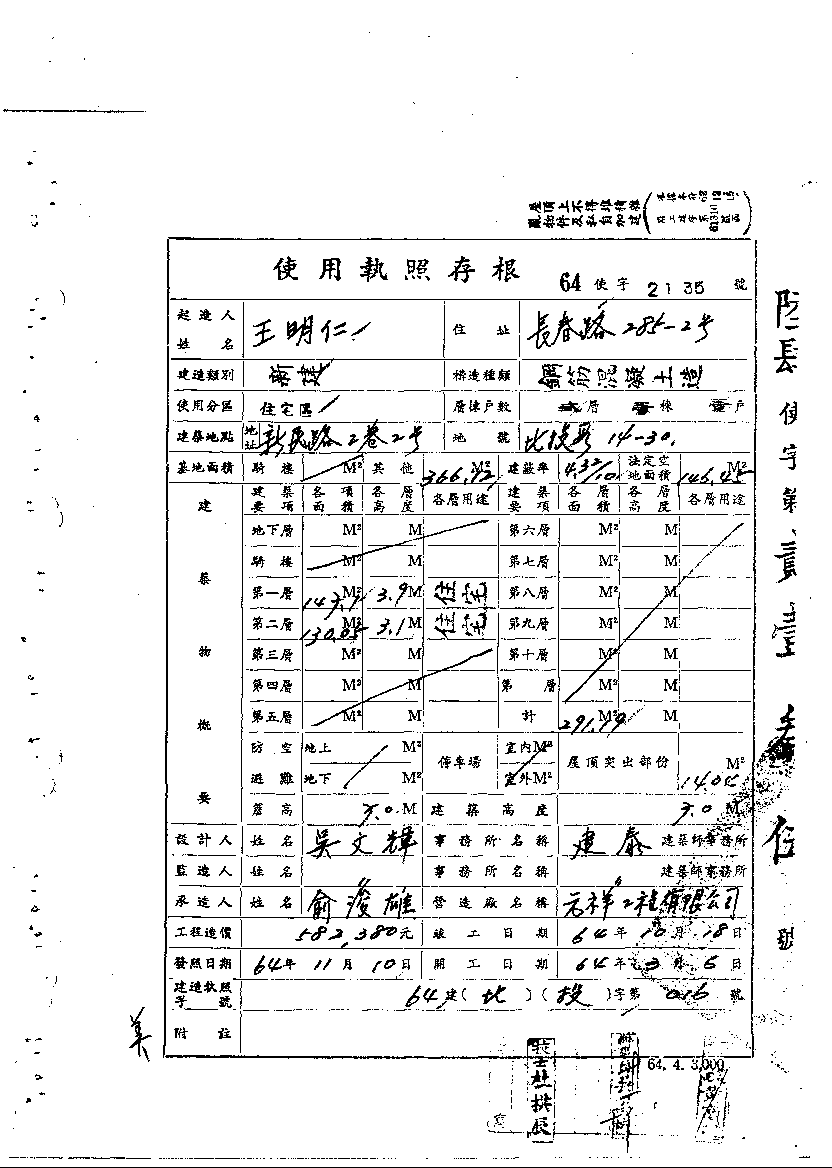 屋頂上不得堆積雜
亂物件及私自加建
使用執照存根 64 使字 2135 號
起造人姓名 王明仁 住址 長春路285-2号
建造類別 新建 構造種類 鋼筋混凝土造
使用分區 住宅區 層棟戶數 層 棟 壹戶
建築地點 地址 新民路2巷2号 地號 北投段14-30.
基地面積 騎樓 M² 其他 366.12 M² 建蔽率 4.32/10 法定空地面積 146.45 M²
建築物概要
建築要項 各項面積 各層高度 各層用途 建築要項 各層面積 各層高度 各層用途
地下層 M² M 第六層 M² M
騎樓 M² M 第七層 M² M
第一層 M² 3.9M 住宅 第八層 M² M
第二層 130.05M² 3.1M 住宅 第九層 M² M
第三層 M² M 第十層 M² M
第四層 M² M 第 層 M² M
第五層 M² M 計 291.19 M² M
防空避難 地上 M² 停車場 室內M² 屋頂突出部份 14.05 M²
地下 M² 室外M²
簷高 7.0 M 建築高度 7.0 M
設計人 姓名 吳文輝 事務所名稱 建泰 建築師事務所
監造人 姓名 事務所名稱 建築師事務所
承造人 姓名 俞俊雄 營造廠名稱 元祥工程有限公司
工程造價 582,380元 竣工日期 64年10月18日
發照日期 64年11月10日 開工日期 64年3月6日
建造執照字號 64建(北)(投)字第016號
附註
64. 4. 3,000
使字第貳壹叁伍號